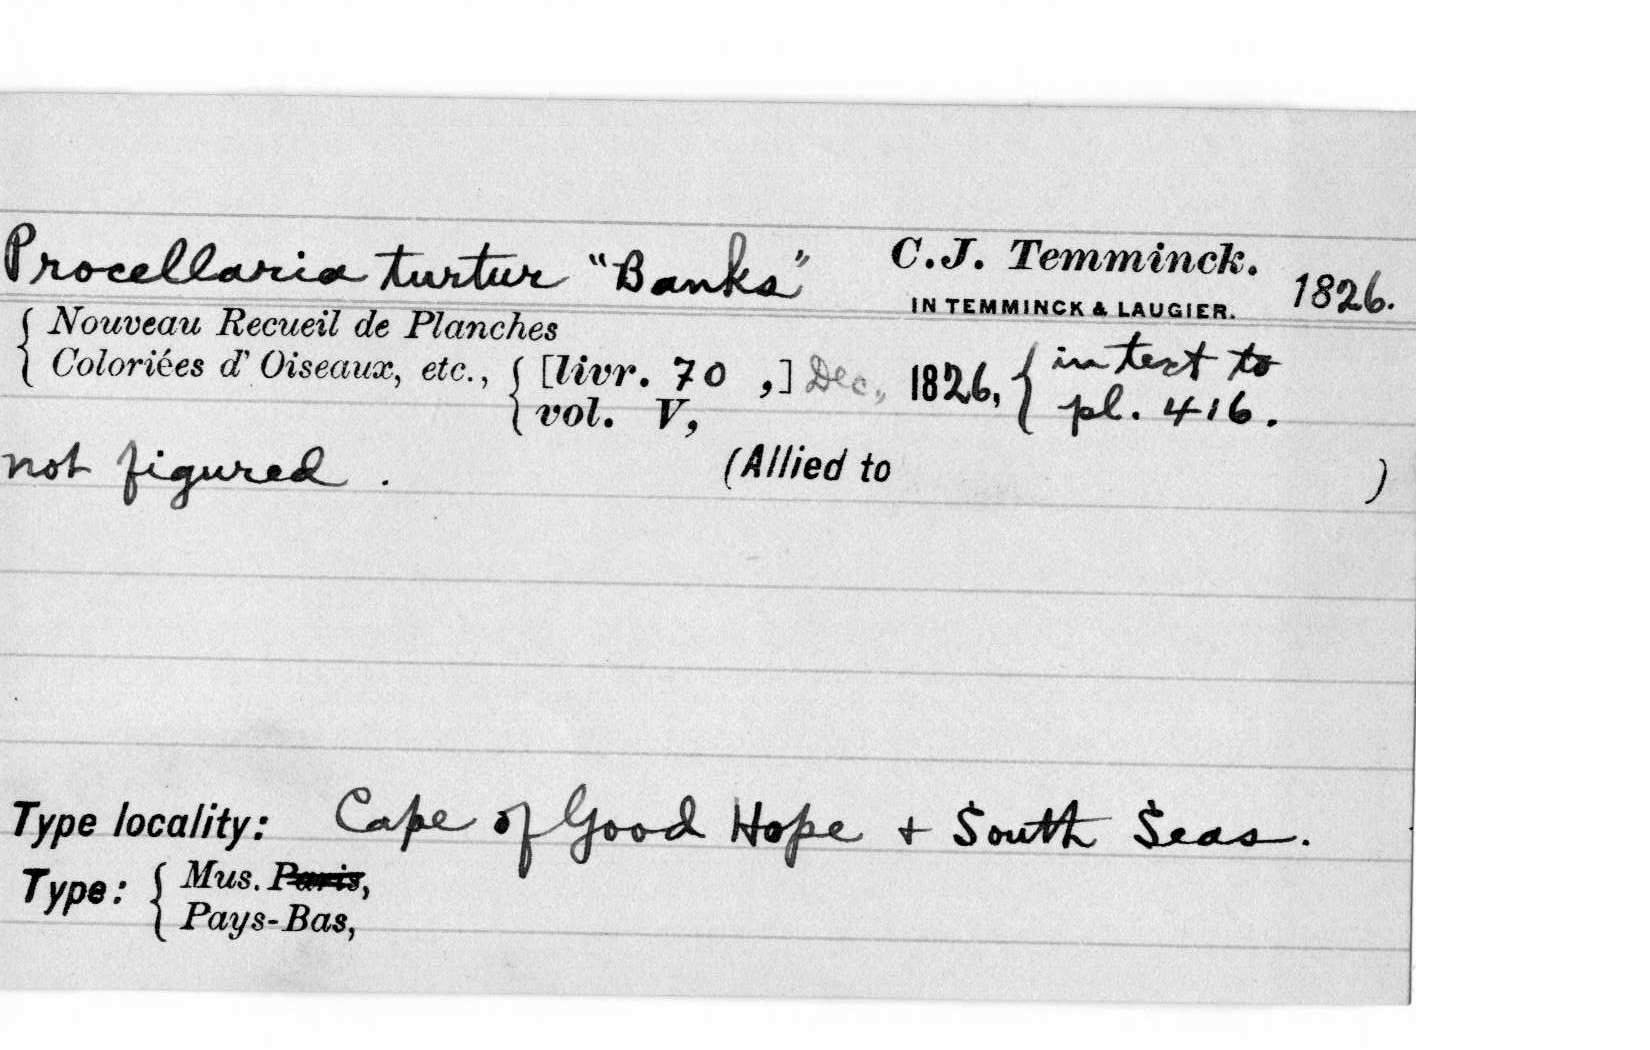 Procellaria turtur "Banks" C.J. Temminck. 1826.
IN TEMMINCK & LAUGIER.
Nouveau Recueil de Planches
Coloriées d' Oiseaux, etc., [livr. 70 ,] Dec., 1826, in text to
vol. V, pl. 416.
not figured. (Allied to )
Type locality: Cape of Good Hope + South Seas.
Type: Mus. Paris,
Pays-Bas,